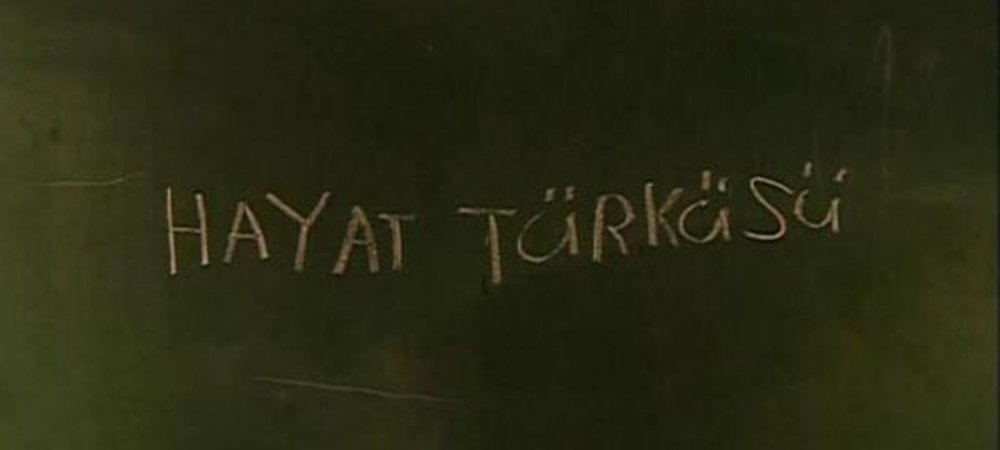 HAYAT TÜRKÜSÜ